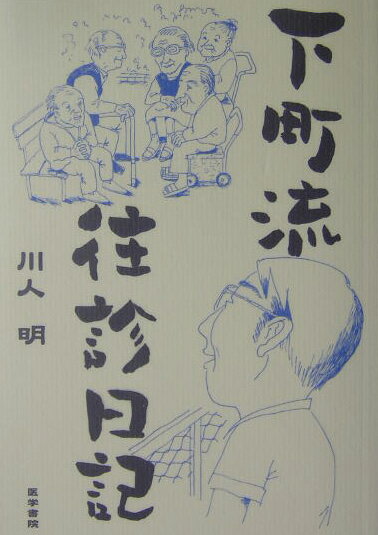 下町流
往診日記
川人 明
医学書院